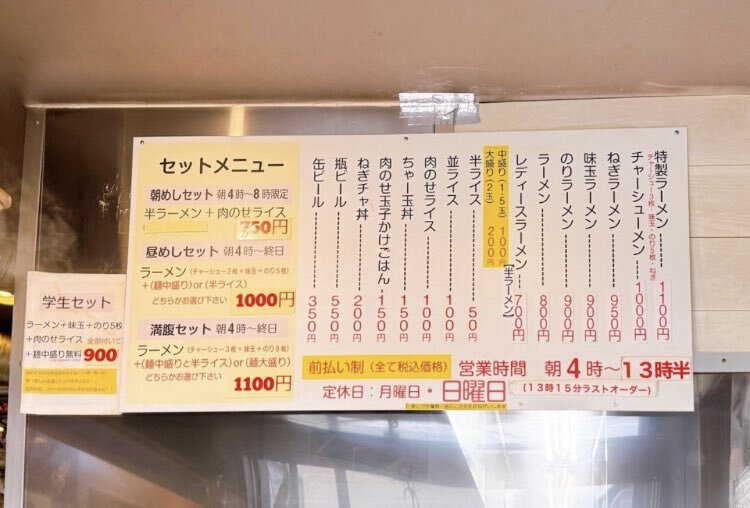 セットメニュー
朝めしセット 朝4時〜8時限定
半ラーメン+肉のせライス
750円
昼めしセット 朝4時〜終日
ラーメン(チャーシュー2枚+味玉+のり5枚)
+(麺中盛り)or(半ライス)
どちらかお選び下さい 1000円
満腹セット 朝4時〜終日
ラーメン(チャーシュー3枚+味玉+のり5枚)
+(麺中盛りと半ライス)or(麺大盛り)
どちらかお選び下さい 1100円
特製ラーメン 1100円
チャーシュー3枚・味玉・のり5枚・ねぎ
チャーシューメン 1000円
ねぎラーメン 950円
味玉ラーメン 900円
のりラーメン 900円
ラーメン 800円
レディースラーメン 700円
【半ラーメン】
中盛り(1・5玉) 100円
大盛り(2玉) 200円
半ライス 50円
並ライス 100円
肉のせライス 100円
ちゃー玉丼 150円
肉のせ玉子かけごはん 150円
ねぎチャ丼 200円
瓶ビール 550円
缶ビール 350円
前払い制(全て税込価格) 営業時間 朝4時〜13時半
(13時15分ラストオーダー)
定休日:月曜日・日曜日
学生セット
ラーメン+味玉+のり5枚
+肉のせライス 全部付いて
+麺中盛り無料 900